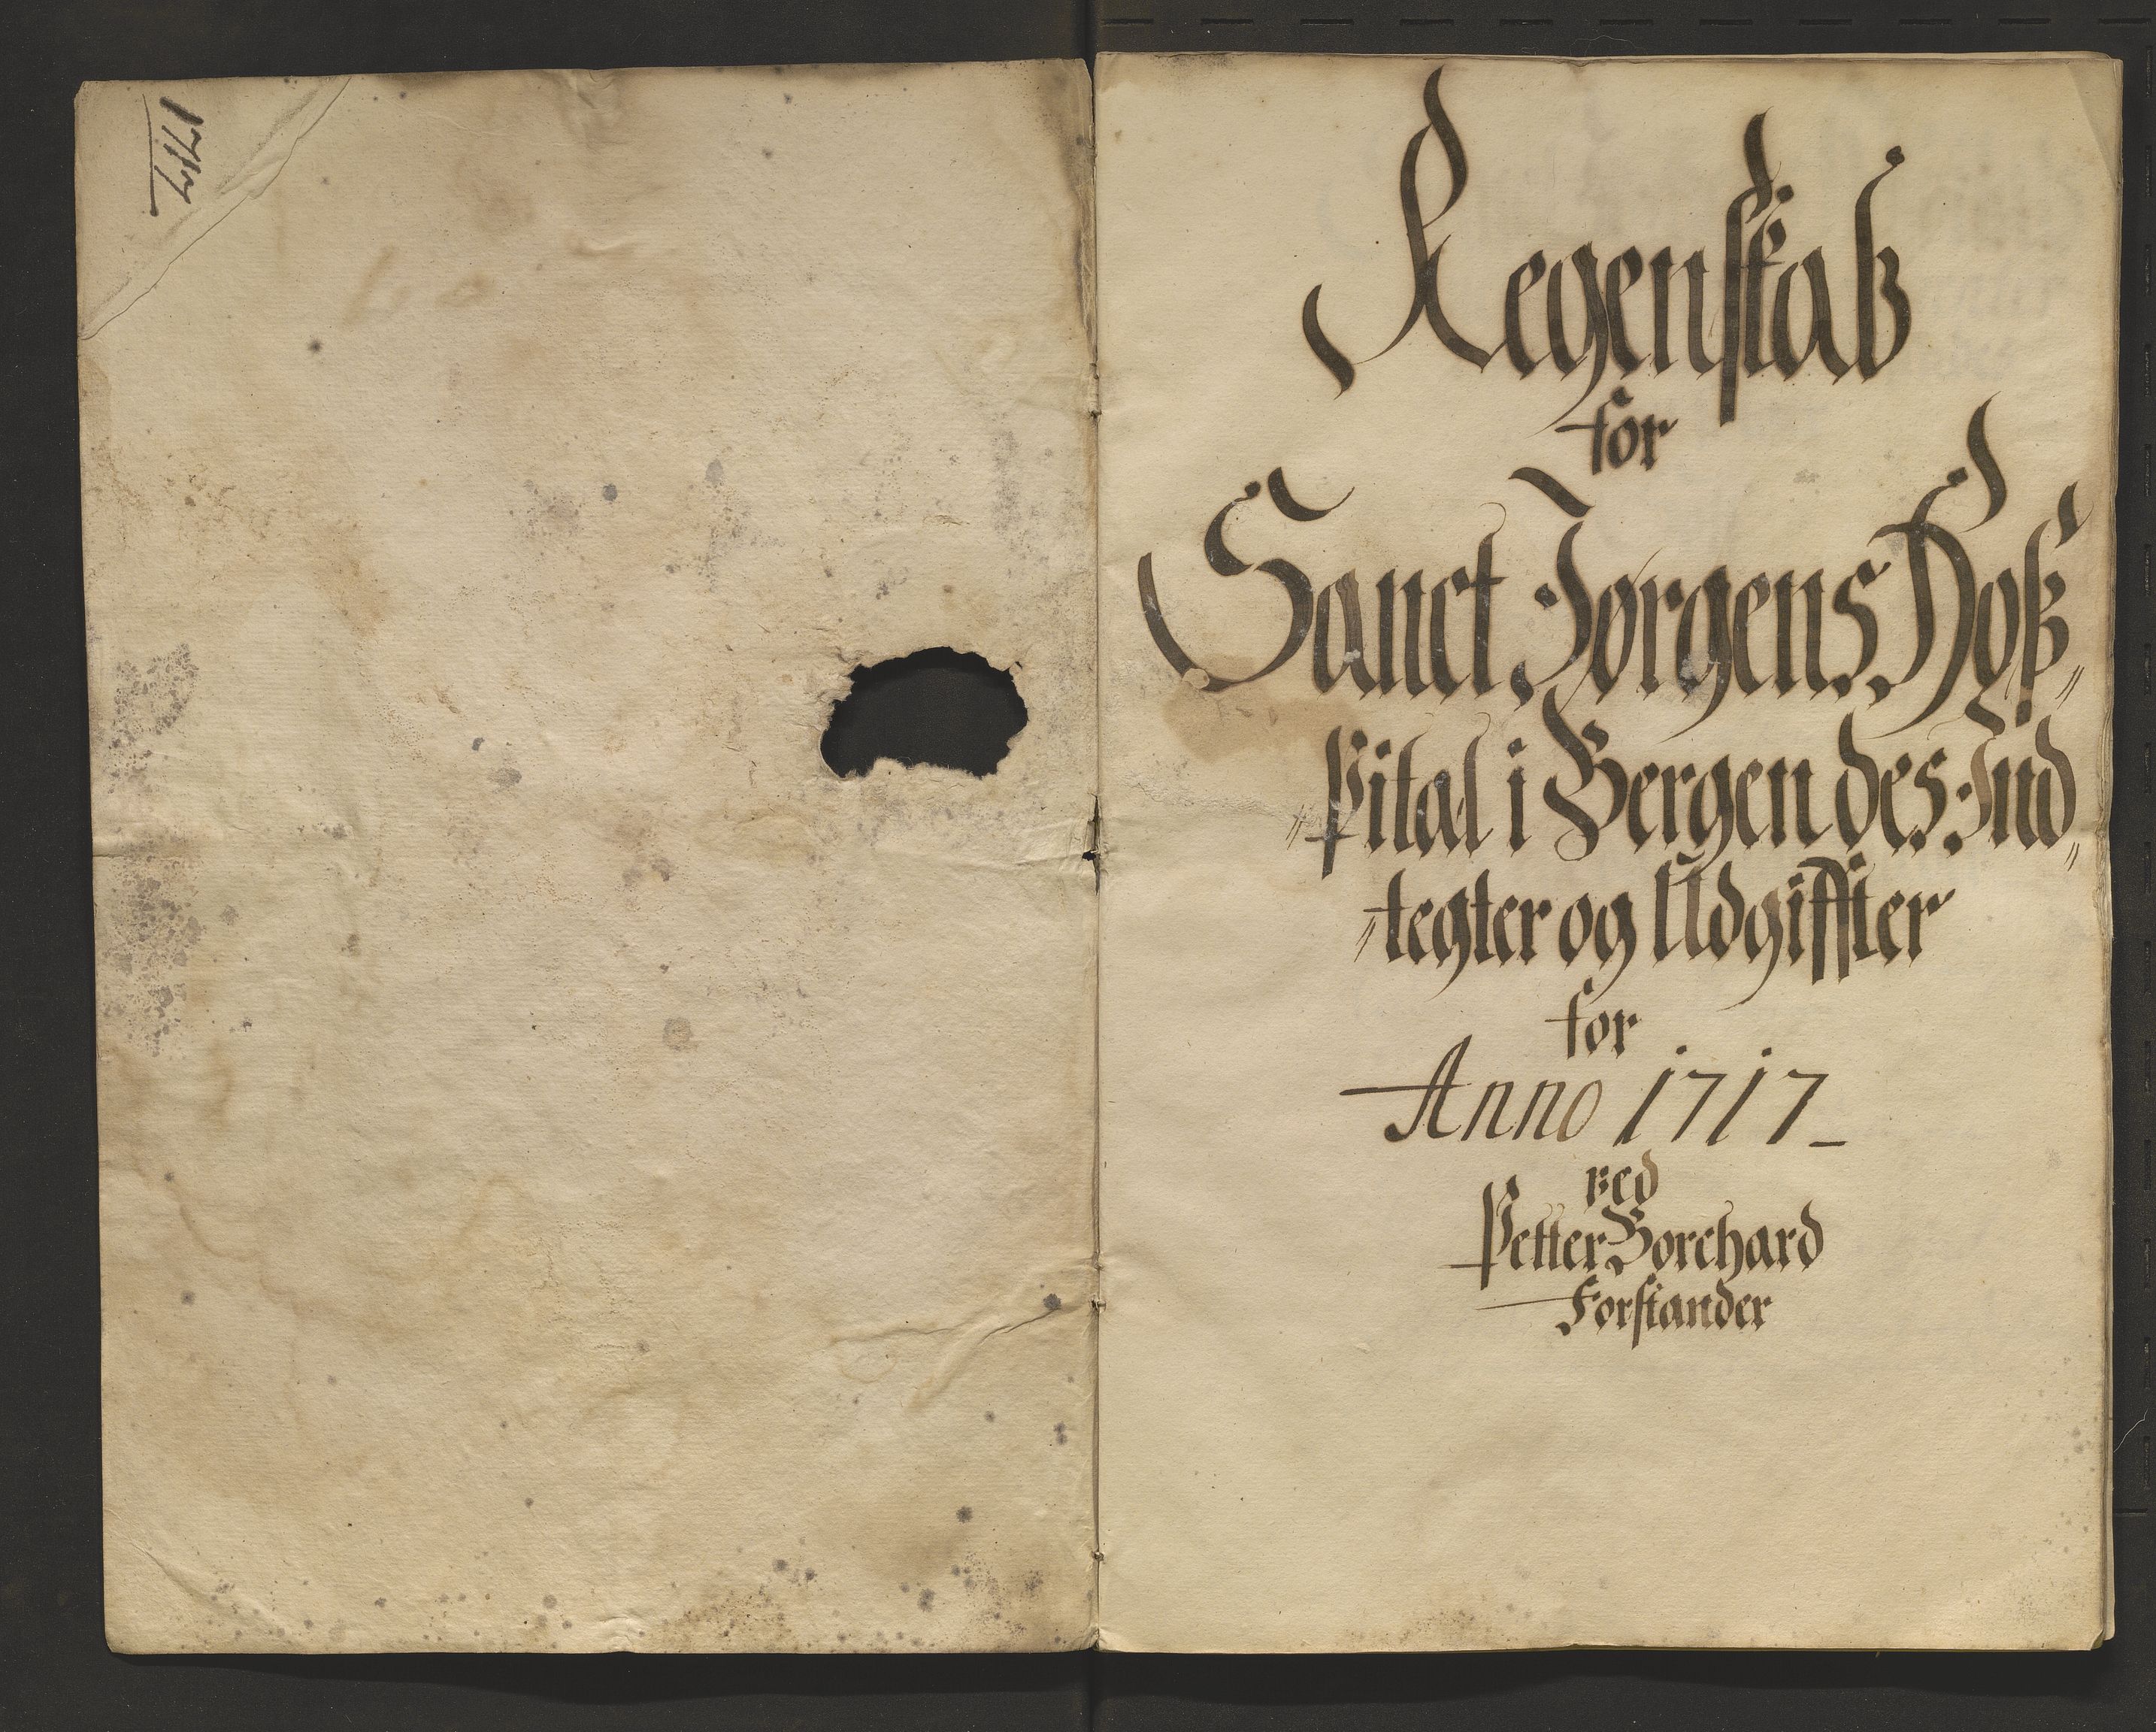 1717
Regenskab
for
Sanct Jørgens Hoß„
„pital i Bergen des Ind„
„tegter og Udgiffter
for
Anno 1717_
ved
Petter Borchard
Forstander